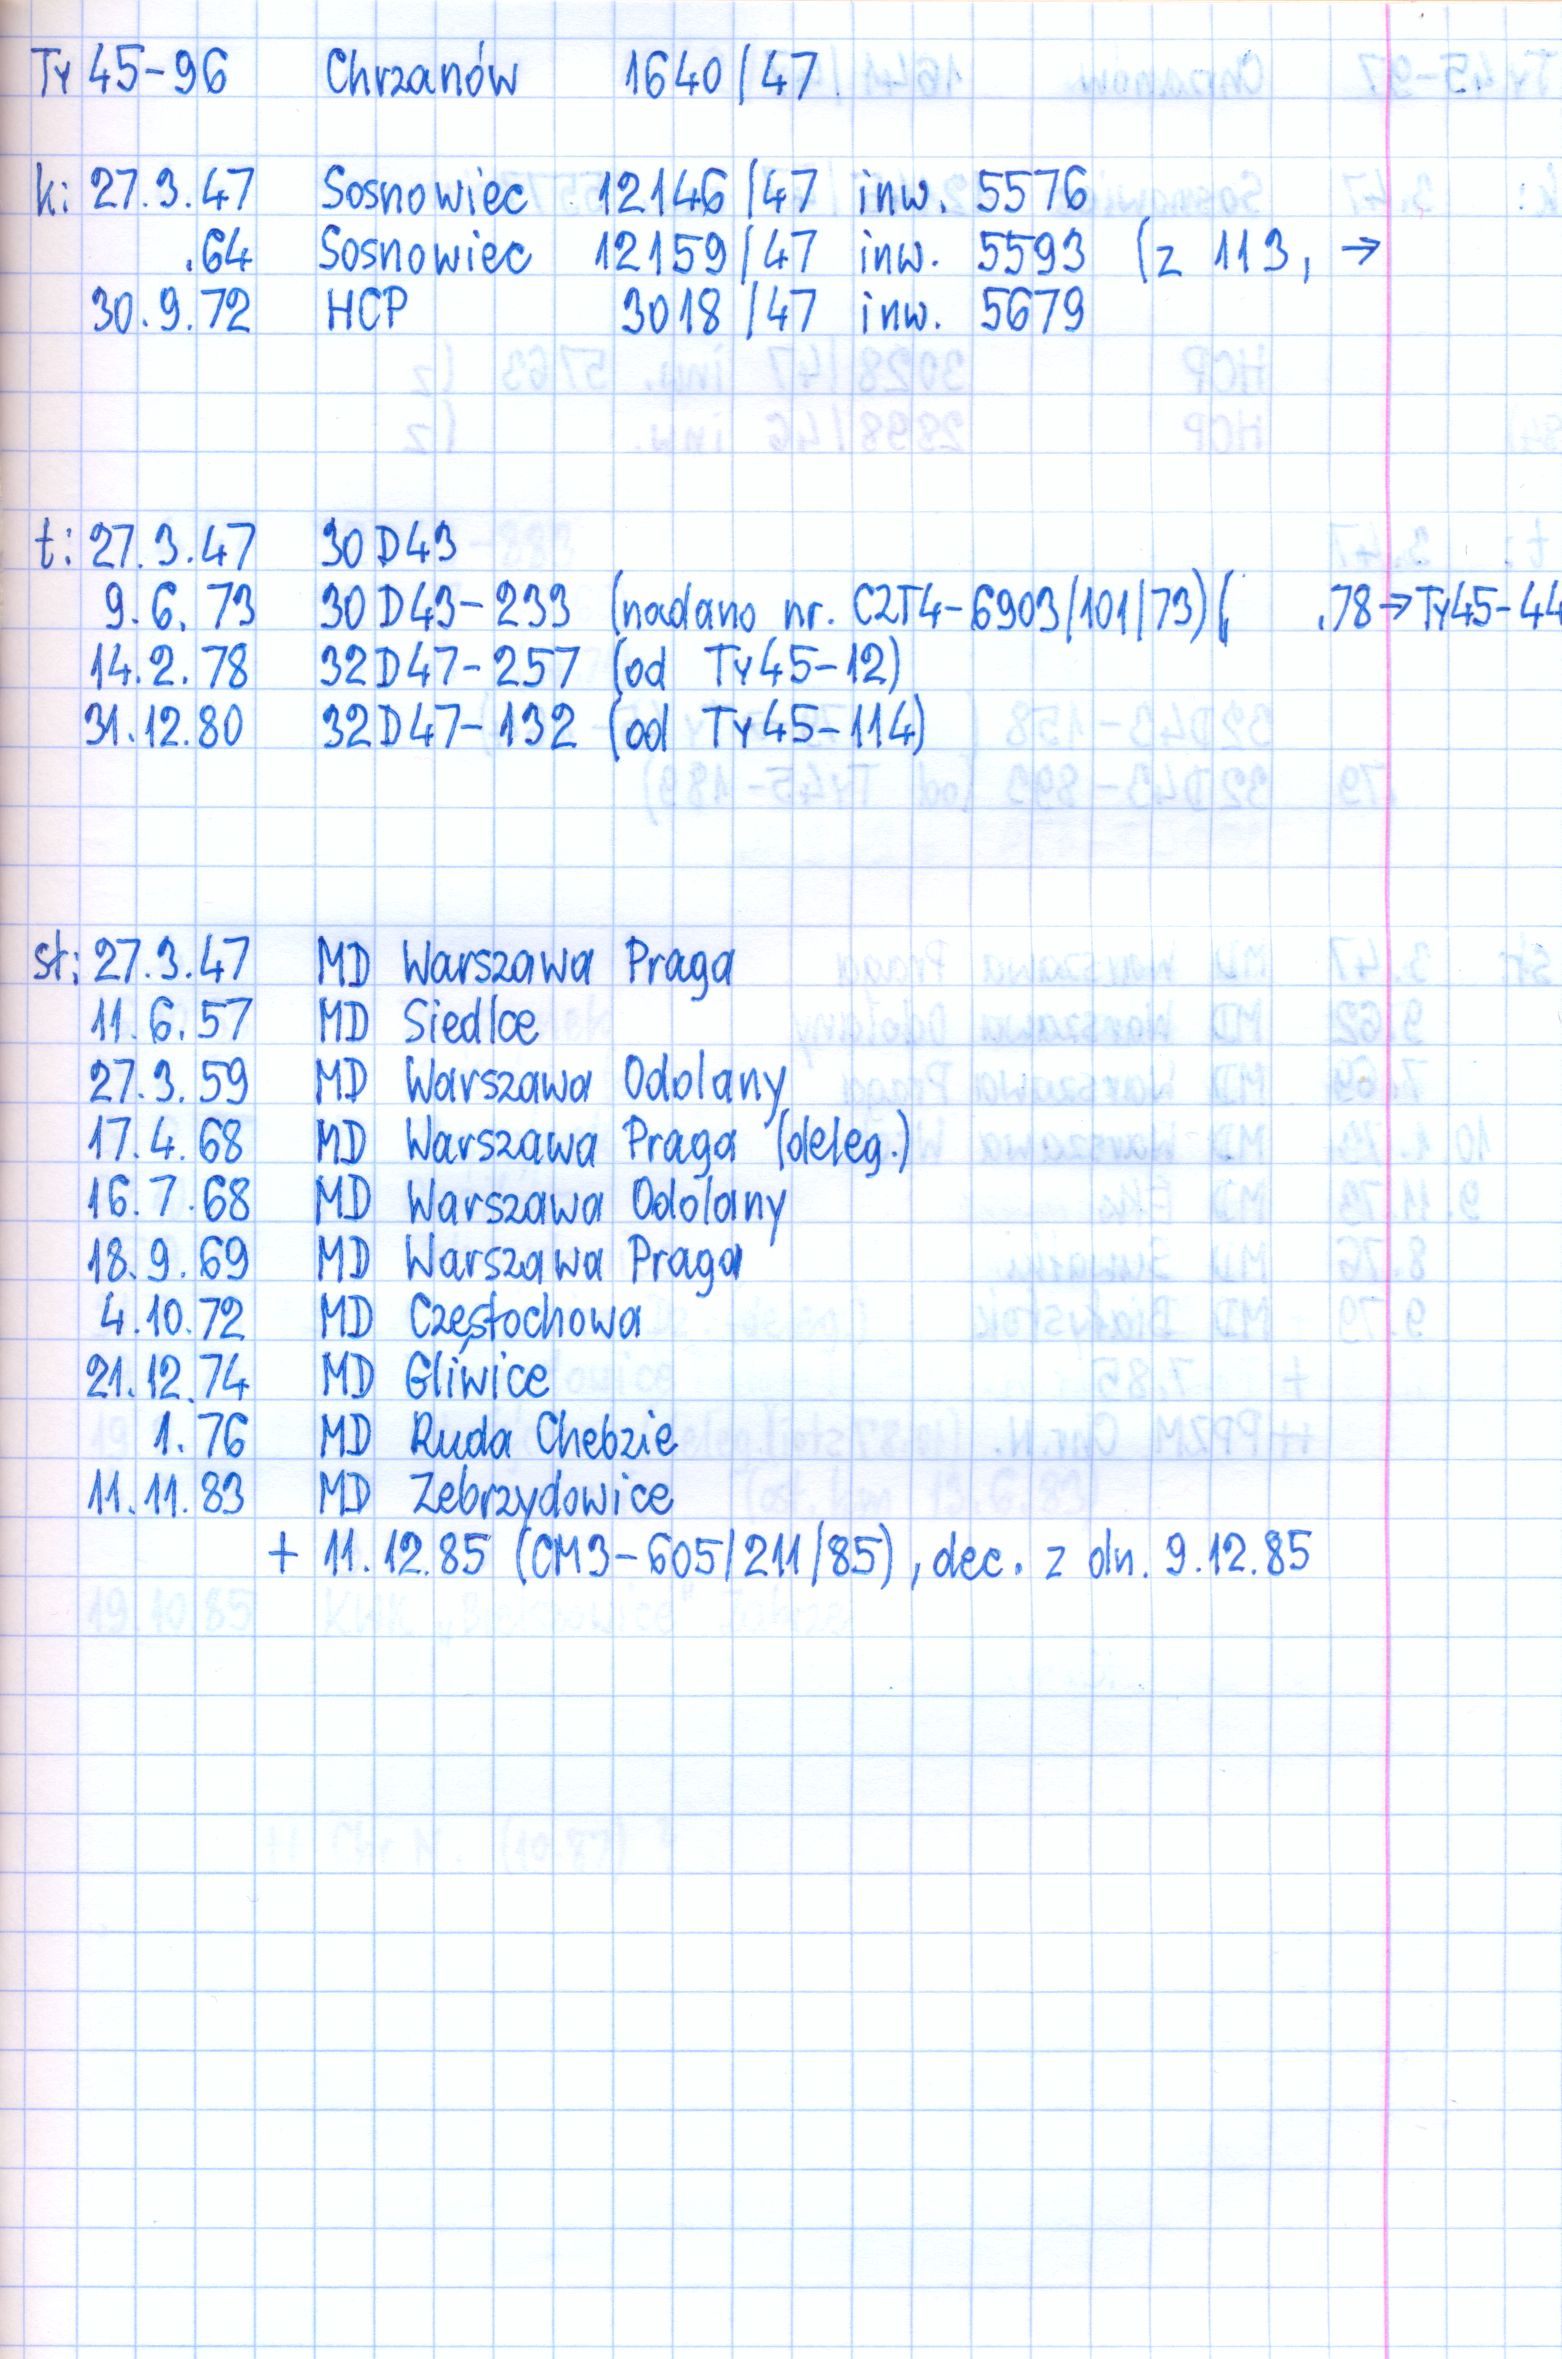 Ty 45-96 Chrzanów 1640/47
k: 27.3.47 Sosnowiec 12146/47 inw. 5576
.64 Sosnowiec 12159/47 inw. 5593 (z 113, →
30.9.72 HCP 3018/47 inw. 5679
t: 27.3.47 30D43
9.6.73 30D43-233 (nadano nr. CZT4-6903/101/73) ( .78→Ty45-44
14.2.78 32D47-257 (od Ty45-12)
31.12.80 32D47-132 (od Ty45-114)
st: 27.3.47 MD Warszawa Praga
11.6.57 MD Siedlce
27.3.59 MD Warszawa Odolany
17.4.68 MD Warszawa Praga (deleg.)
16.7.68 MD Warszawa Odolany
18.9.69 MD Warszawa Praga
4.10.72 MD Częstochowa
21.12.74 MD Gliwice
1.76 MD Ruda Chebzie
11.11.83 MD Zebrzydowice
+ 11.12.85 (CM3-605/211/85), dec. z dn. 9.12.85